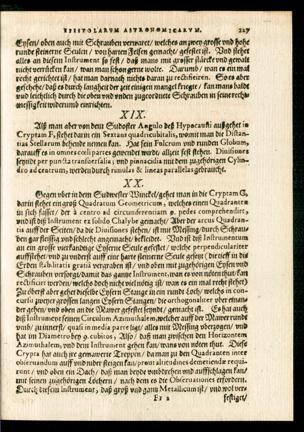 EPISTOLARUM ASTRONOMICARUM. 227
Eysen/ oben auch mit Schrauben verwaret/ welches an zwey grosse und hohe
runde steinerne Seulen/ von hartem Felsen gemacht/ gefestet ist. Und stehet
alles an diesem Instrument so fest/ daß mans mit grosser stärcke und gewalt
nicht verrücken kan/ wan man schon gerne wolte. Darumb/ wan es ein mal
recht gerichtet ist/ hat man darnach nichts daran zu rectificiren. So es aber
geschehe/ daß es durch lengheit der zeit einigen mangel kriegte/ kan mans baldt
und leichtlich durch die oben und unden zugeordnete Schrauben in seine rech-
messigkeit widerumb einrichten.
XIX.
Alß man aber von dem Sudoster Angulo deß Hypocausti außgehet in
Cryptam F, stehet darin ein Sextans quadricubitalis, womit man die Distan-
tias Stellarum behende nemen kan. Hat sein Fulcrum und runden Globum,
darauff es in omnes cæli partes gewendet würde alzeit fest stehen. Divisiones
seyndt per puncta transversalia, und pinnacidia mit dem zugehörigen Cylin-
dro ad centrum, werden durch rimulas & lineas parallelas gebraucht.
XX.
Gegen uber in dem Sudwester Winckel/ gehet man in die Cryptam G,
darin stehet ein groß Quadratum Geometricum, welches einen Quadranten
in sich fasset/ der à centro ad circumferentiam 9. pedes comprehendirt,
und ist diß Instrument ex solido Chalybe gemacht/ Aber der arcus Quadran-
tis auff der Seiten/ da die Divisiones stehen/ ist mit Messing/ durch Schrau-
ben gar fleissig und höfflich angemacht/ bekleidet. Und ist diß Instrumentum
an ein grosse vierkandige Eysene Seule gesestet/ welche perpendiculariter
auffstehet/ und zu underst auff eine harte steinerne Seule gesetzt (die tieff in die
Erden stabilitatis gratia vergraben ist/ und oben mit zugehörigen Eysen und
Schrauben versorgt/ damit das gantze Instrument, man es von nöten thut/ kan
rectificirt werden/ welches doch nicht viel nötig ist/ wan es ein mal recht stehet)
Zu oberst aber gehet dieselbe Eysern Stange in ein rundt Loch/ welche in con-
cursu zweyer grossen langen Eysern Stangen/ die orthogonaliter uber einan-
der gehen/ und oben an der Mawer gefestet seyndt/ gemacht ist. Es hat auch
diß Instrument seinen Circulum Azimuthalem, welcher auff der Mawer runde
umb/ zu innerst/ quasi in media parte ligt/ alles mit Messing uberzogen/ und
hat im Diametro bey 9. cubitos, Also/ daß man zwischen den Horizontem
Azimuthalem, und dem Instrument gehen kan/ wans von nöten thut. Diese
Crypta hat auch jre gemawerte Treppen/ da man zu den Quadranten inter
observandum auff und nider steigen kan/ prout altitudines demetiendæ requi-
runt/ und oben ein Dach/ daß man beyde umbdrehen und auffschlagen kan/
mit seinen zugehörigen Löchern/ nach dem es die Observationes erfordern.
Durch diesem Instrument/ daß groß und gantz Metallicum ist/ und wol ver-
festiget/